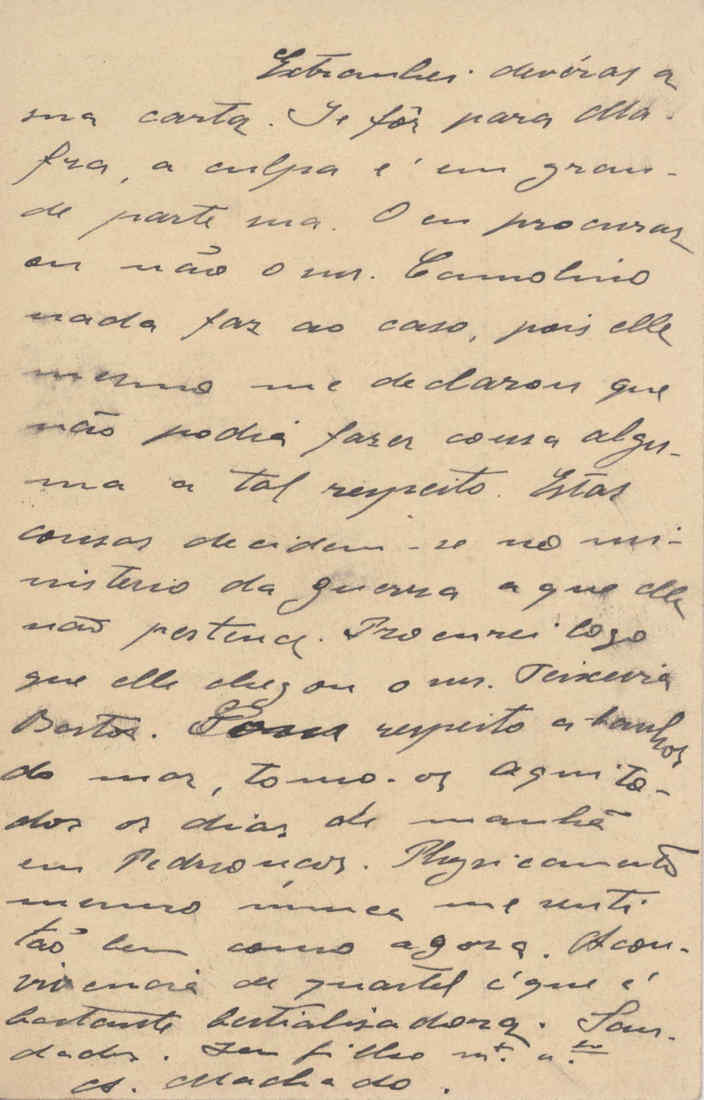 Extranhei devéras a
sua carta. Se fôr para Ma-
fra, a culpa é em gran-
de parte sua. O eu procurar
ou não o snr. Camolino
nada faz ao caso, pois elle
mesmo me declarou que
não podia fazer cousa algu-
ma a tal respeito. Estas
cousas decidem-se no mi-
nisterio da guerra a que elle
não pertence. Procurei logo
que elle chegou o snr. Teixeira
Bastos. respeito a banhos
do mar, tomo-os aqui to-
dos os dias de manhã
em Pedrouços. Physicamente
mesmo nunca me senti
tão bem como agora. A con-
vivencia de quartel é que é
bastante bestialisadora. Sau-
dades. Seu filho mt.º a.º
A. Machado.